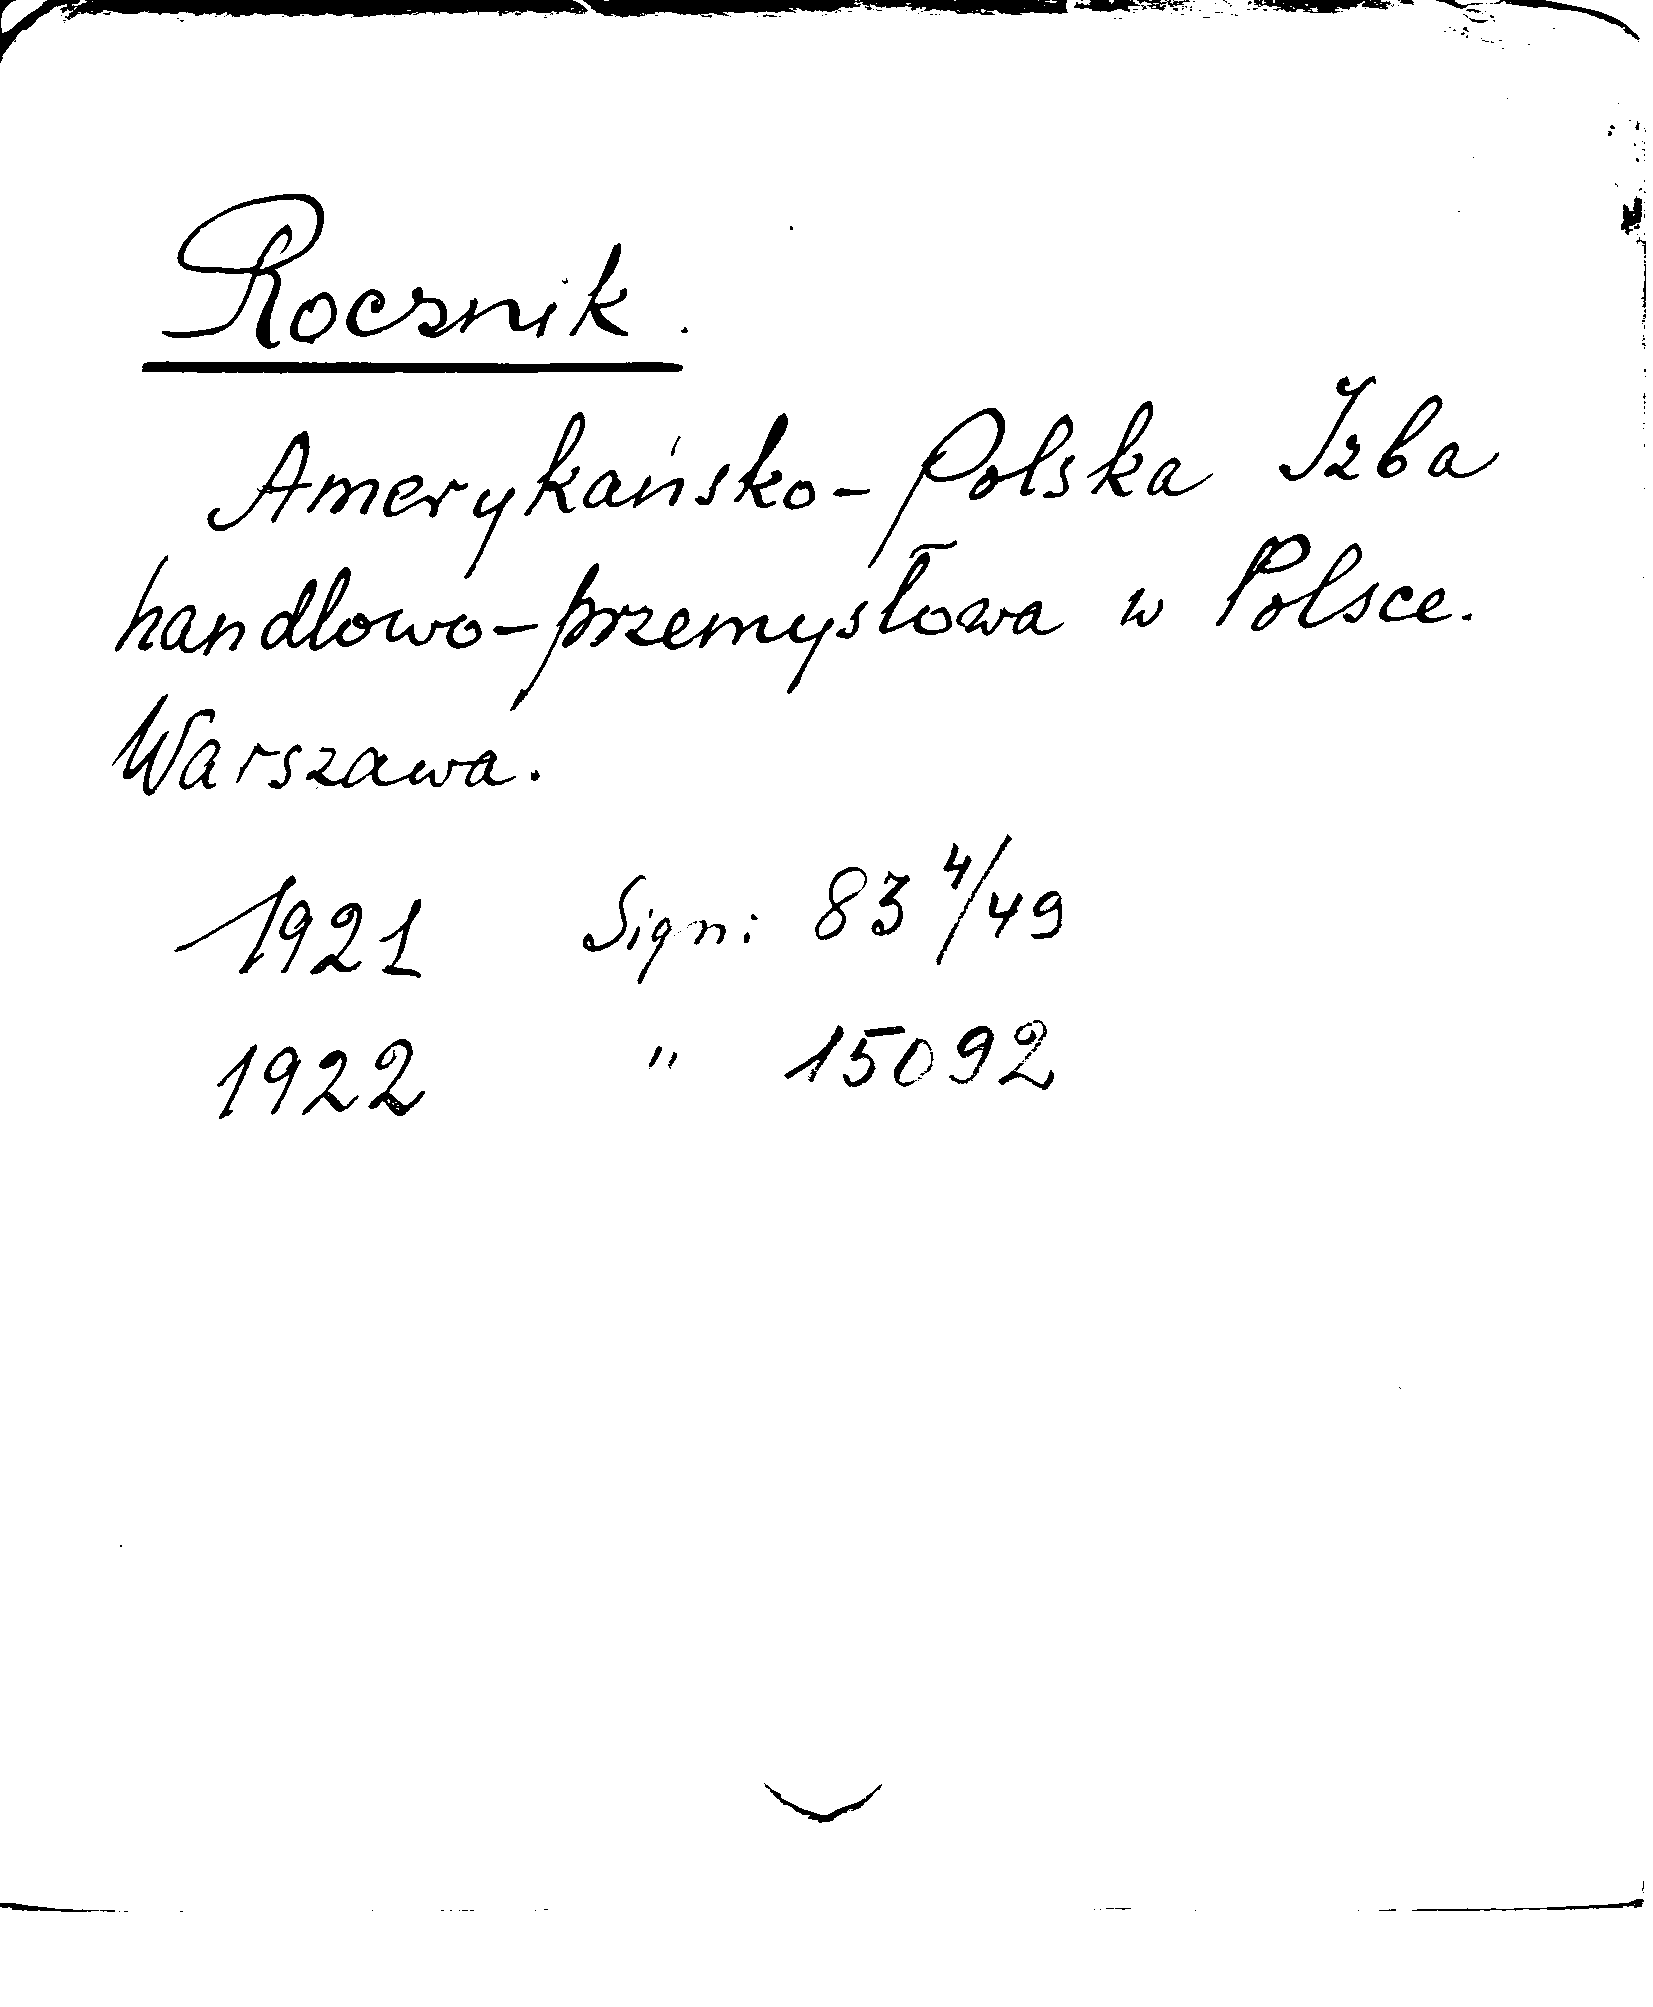 Rocznik.
Amerykańsko-Polska Izba
handlowo-przemysłowa w Polsce.
Warszawa.
1921 Sign: 83 4/49
1922 " 15092